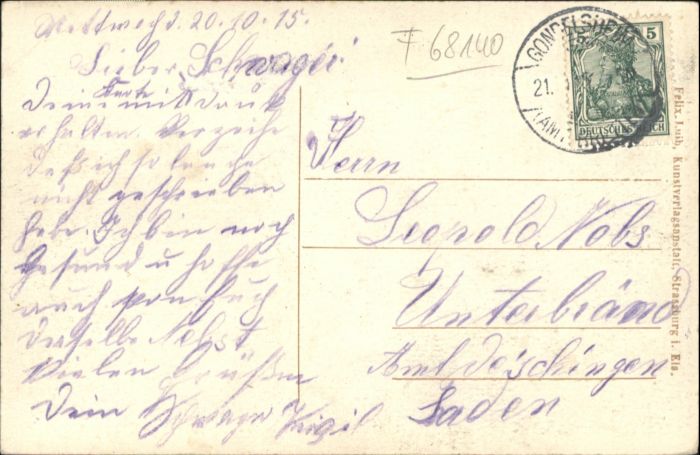 Mittwoch d. 20.10.15.
Lieber Schwager
Deine Karte mitt dank
erhalten. Verzeihe
daß ich so lange
nicht geschrieben
habe. Ich bin noch
gesund u hoffe
auch von Euch
dasselbe Nebst
Vielen Grüßen
Dein Schwager Virgil
F 68140
GONDELSHEIM
21.
(AMT
5
DEUTSCHES REICH
Herrn
Leopold Nobs
Unterbränd
Amt
Baden
Felix Luib, Kunstverlagsanstalt, Strassburg i. Els.